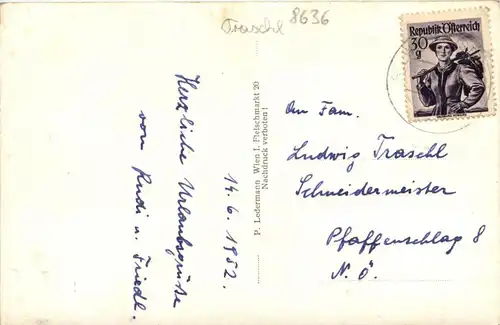 Traschl 8636
Republik Österreich
30
g
Herzliche Urlaubsgrüße
von Rudi u. Friedl.
14.6.1952.
P. Ledermann Wien I. Fleischmarkt 20
Nachdruck verboten!
An Fam.
Ludwig Traschl
Schneidermeister
Pfaffenschlag 8
N.Ö.